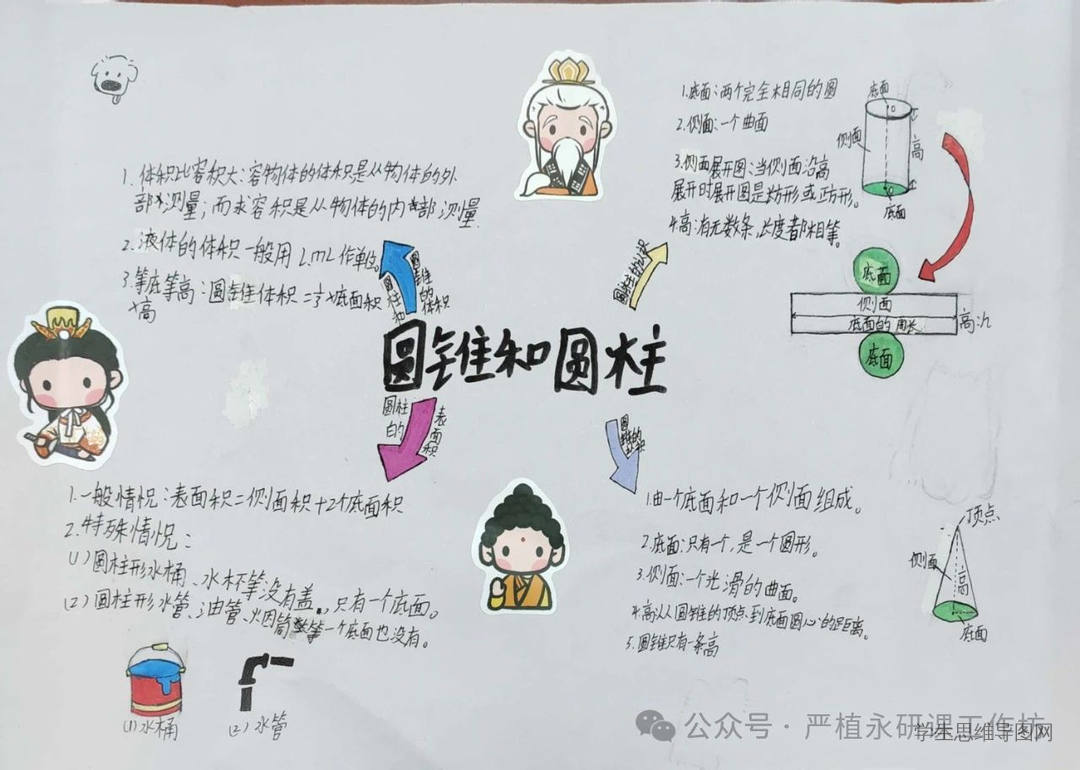 1.体积比容积大：容物体的体积是从物体的外
部测量；而求容积是从物体的内部测量
2.液体的体积一般用L.mL作单位。
3.等底等高：圆锥体积=⅓×底面积
×高
1.底面：两个完全相同的圆
2.侧面：一个曲面
3.侧面展开图：当侧面沿高
展开时展开图是方形或正方形。
4.高：有无数条，长度都相等。
底面
侧面
高
底面
底面
侧面
底面的周长
高
底面
圆锥的体积
圆锥和圆柱
圆柱的
表面积
1.一般情况：表面积=侧面积+2个底面积
2.特殊情况：
(1)圆柱形水桶、水杯等没有盖，只有一个底面。
(2)圆柱形水管、油管、烟筒等一个底面也没有。
(1)水桶
(2)水管
1.由一个底面和一个侧面组成。
2.底面：只有一个，是一个圆形。
3.侧面：一个光滑的曲面。
4.高：从圆锥的顶点到底面圆心的距离。
5.圆锥只有一条高
顶点
侧面
高
底面
公众号·严植永研课工作坊
学生思维导图网